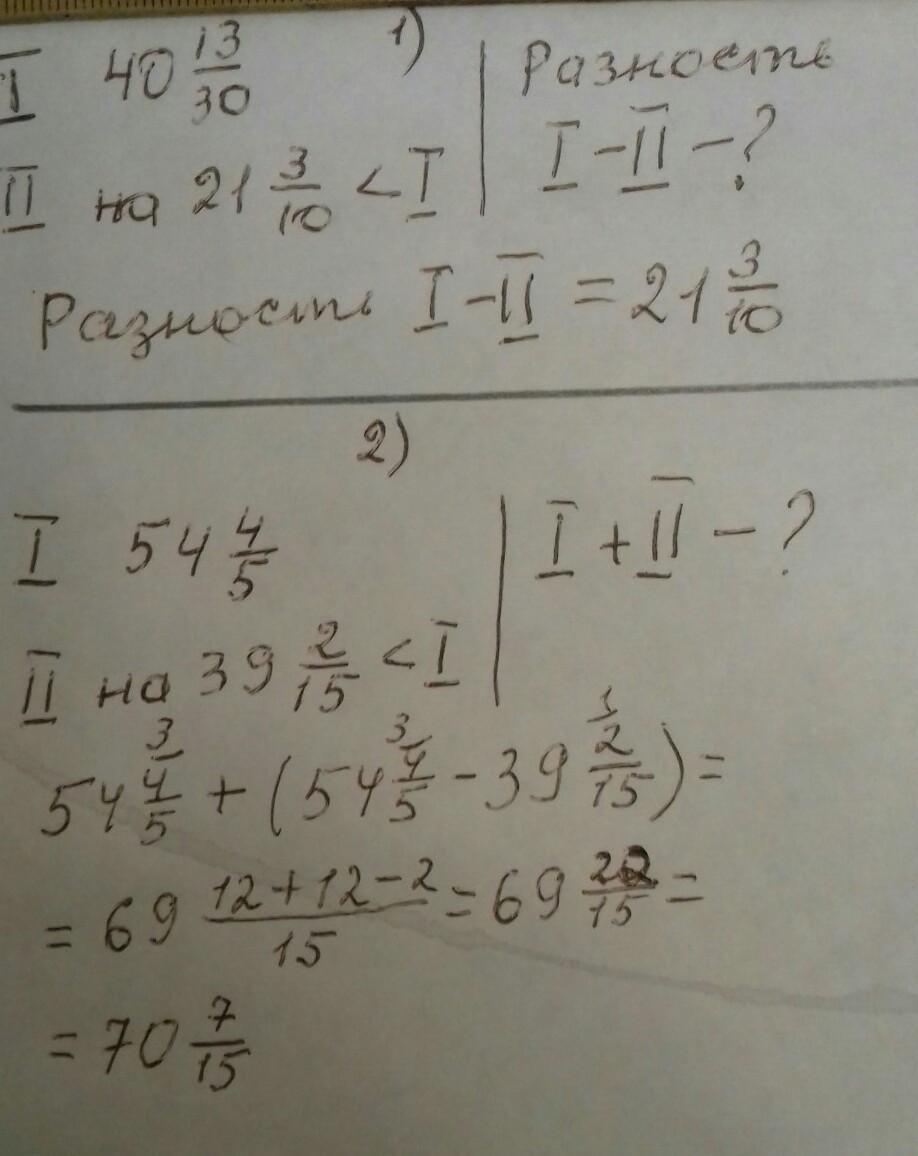 1)
I 40 13/30 | Разность
II на 21 3/10 < I | I - II - ?
Разность I - II = 21 3/10
2)
I 54 4/5 | I + II - ?
II на 39 2/15 < I
54 4/5 ³ + (54 4/5 ³ - 39 2/15 ¹) =
= 69 (12+12-2)/15 = 69 22/15 =
= 70 7/15